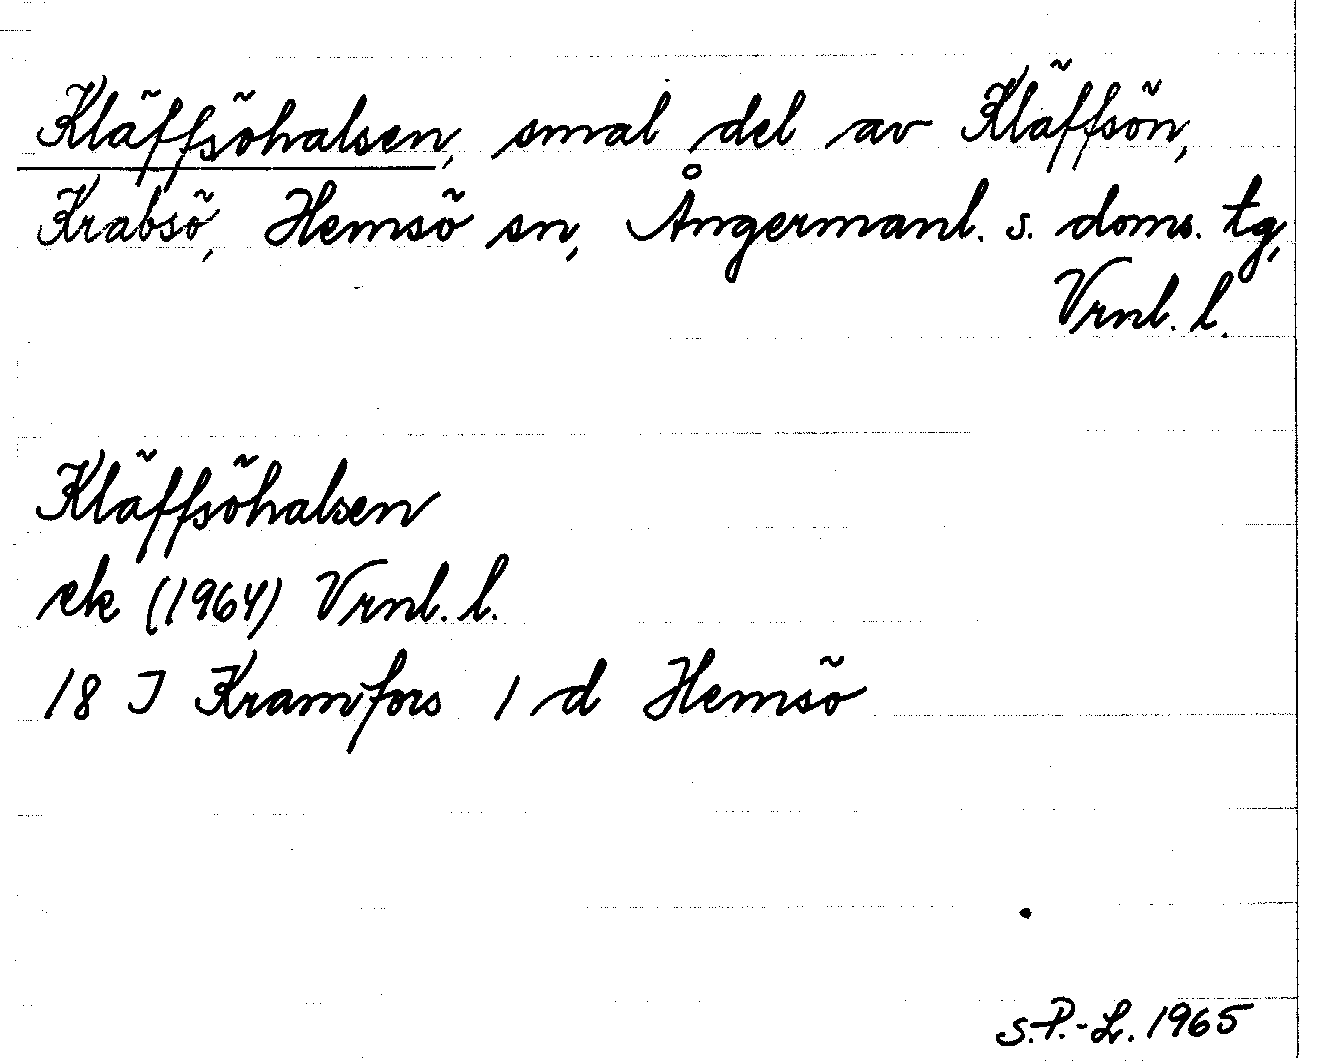 Kläffsöhalsen, smal del av Kläffsön,
Krabsö, Hemsö sn, Ångermanl. s. doms. tg,
Vrnl. l.
Kläffsöhalsen
ek (1964) Vrnl. l.
18 I Kramfors 1 d Hemsö
S.P.-L. 1965